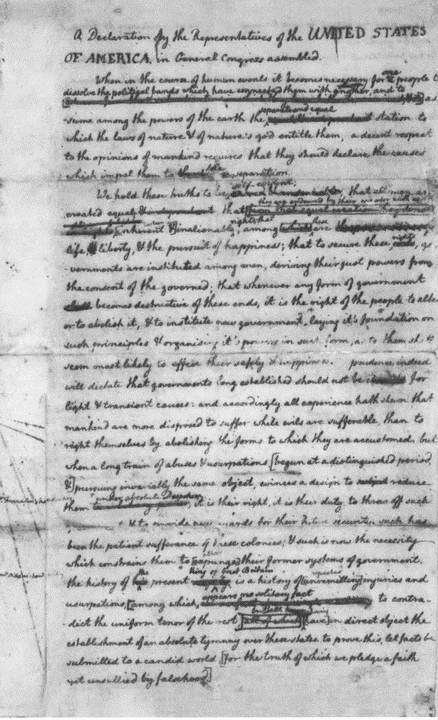 A Declaration by the Representatives of the UNITED STATES
OF AMERICA, in General Congress assembled.
When in the course of human events it becomes necessary for one people to
dissolve the political bands which have connected them with another, and to
as-
separate and equal
sume among the powers of the earth the station to
which the laws of nature & of nature's god entitle them, a decent respect
to the opinions of mankind requires that they should declare the causes
which impel them to the separation.
self-evident
We hold these truths to be that all men are
they are endowed by their creator with
created equal that
rights; that these
inherent & inalienable among are
life, liberty, & the pursuit of happiness; that to secure these go-
vernments are instituted among men, deriving their just powers from
the consent of the governed; that whenever any form of government
becomes destructive of these ends, it is the right of the people to alter
or to abolish it, & to institute new government, laying it's foundation on
such principles & organising it's powers in such form, as to them shall
seem most likely to effect their safety & happiness. prudence indeed
will dictate that governments long established should not be for
light & transient causes: and accordingly all experience hath shewn that
mankind are more disposed to suffer while evils are sufferable, than to
right themselves by abolishing the forms to which they are accustomed. but
when a long train of abuses & usurpations [begun at a distinguished period,
&] pursuing invariably the same object, evinces a design to reduce
under absolute Despotism
them it is their right, it is their duty, to throw off such
& to provide new guards for their future security. such has
been the patient sufferance of these colonies; & such is now the necessity
which constrains them to [expunge] their former systems of government.
king of Great Britain
the history of the present is a history of [unremitting] injuries and
usurpations, [among which, appears no solitary fact to contra-
dict the uniform tenor of the rest [all of which] [have] in direct object the
establishment of an absolute tyranny over these states. to prove this, let facts be
submitted to a candid world [for the truth of which we pledge a faith
yet unsullied by falsehood]